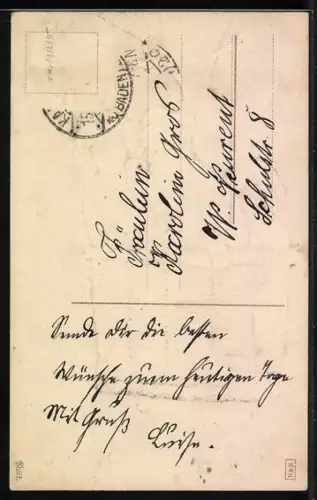 BADEN
Fräulein
Karolin Gros
W. Feurent
Schulstr. 8
Sende Dir die besten
Wünsche zuem heutigen Tage
Mit Gruß
Luise.